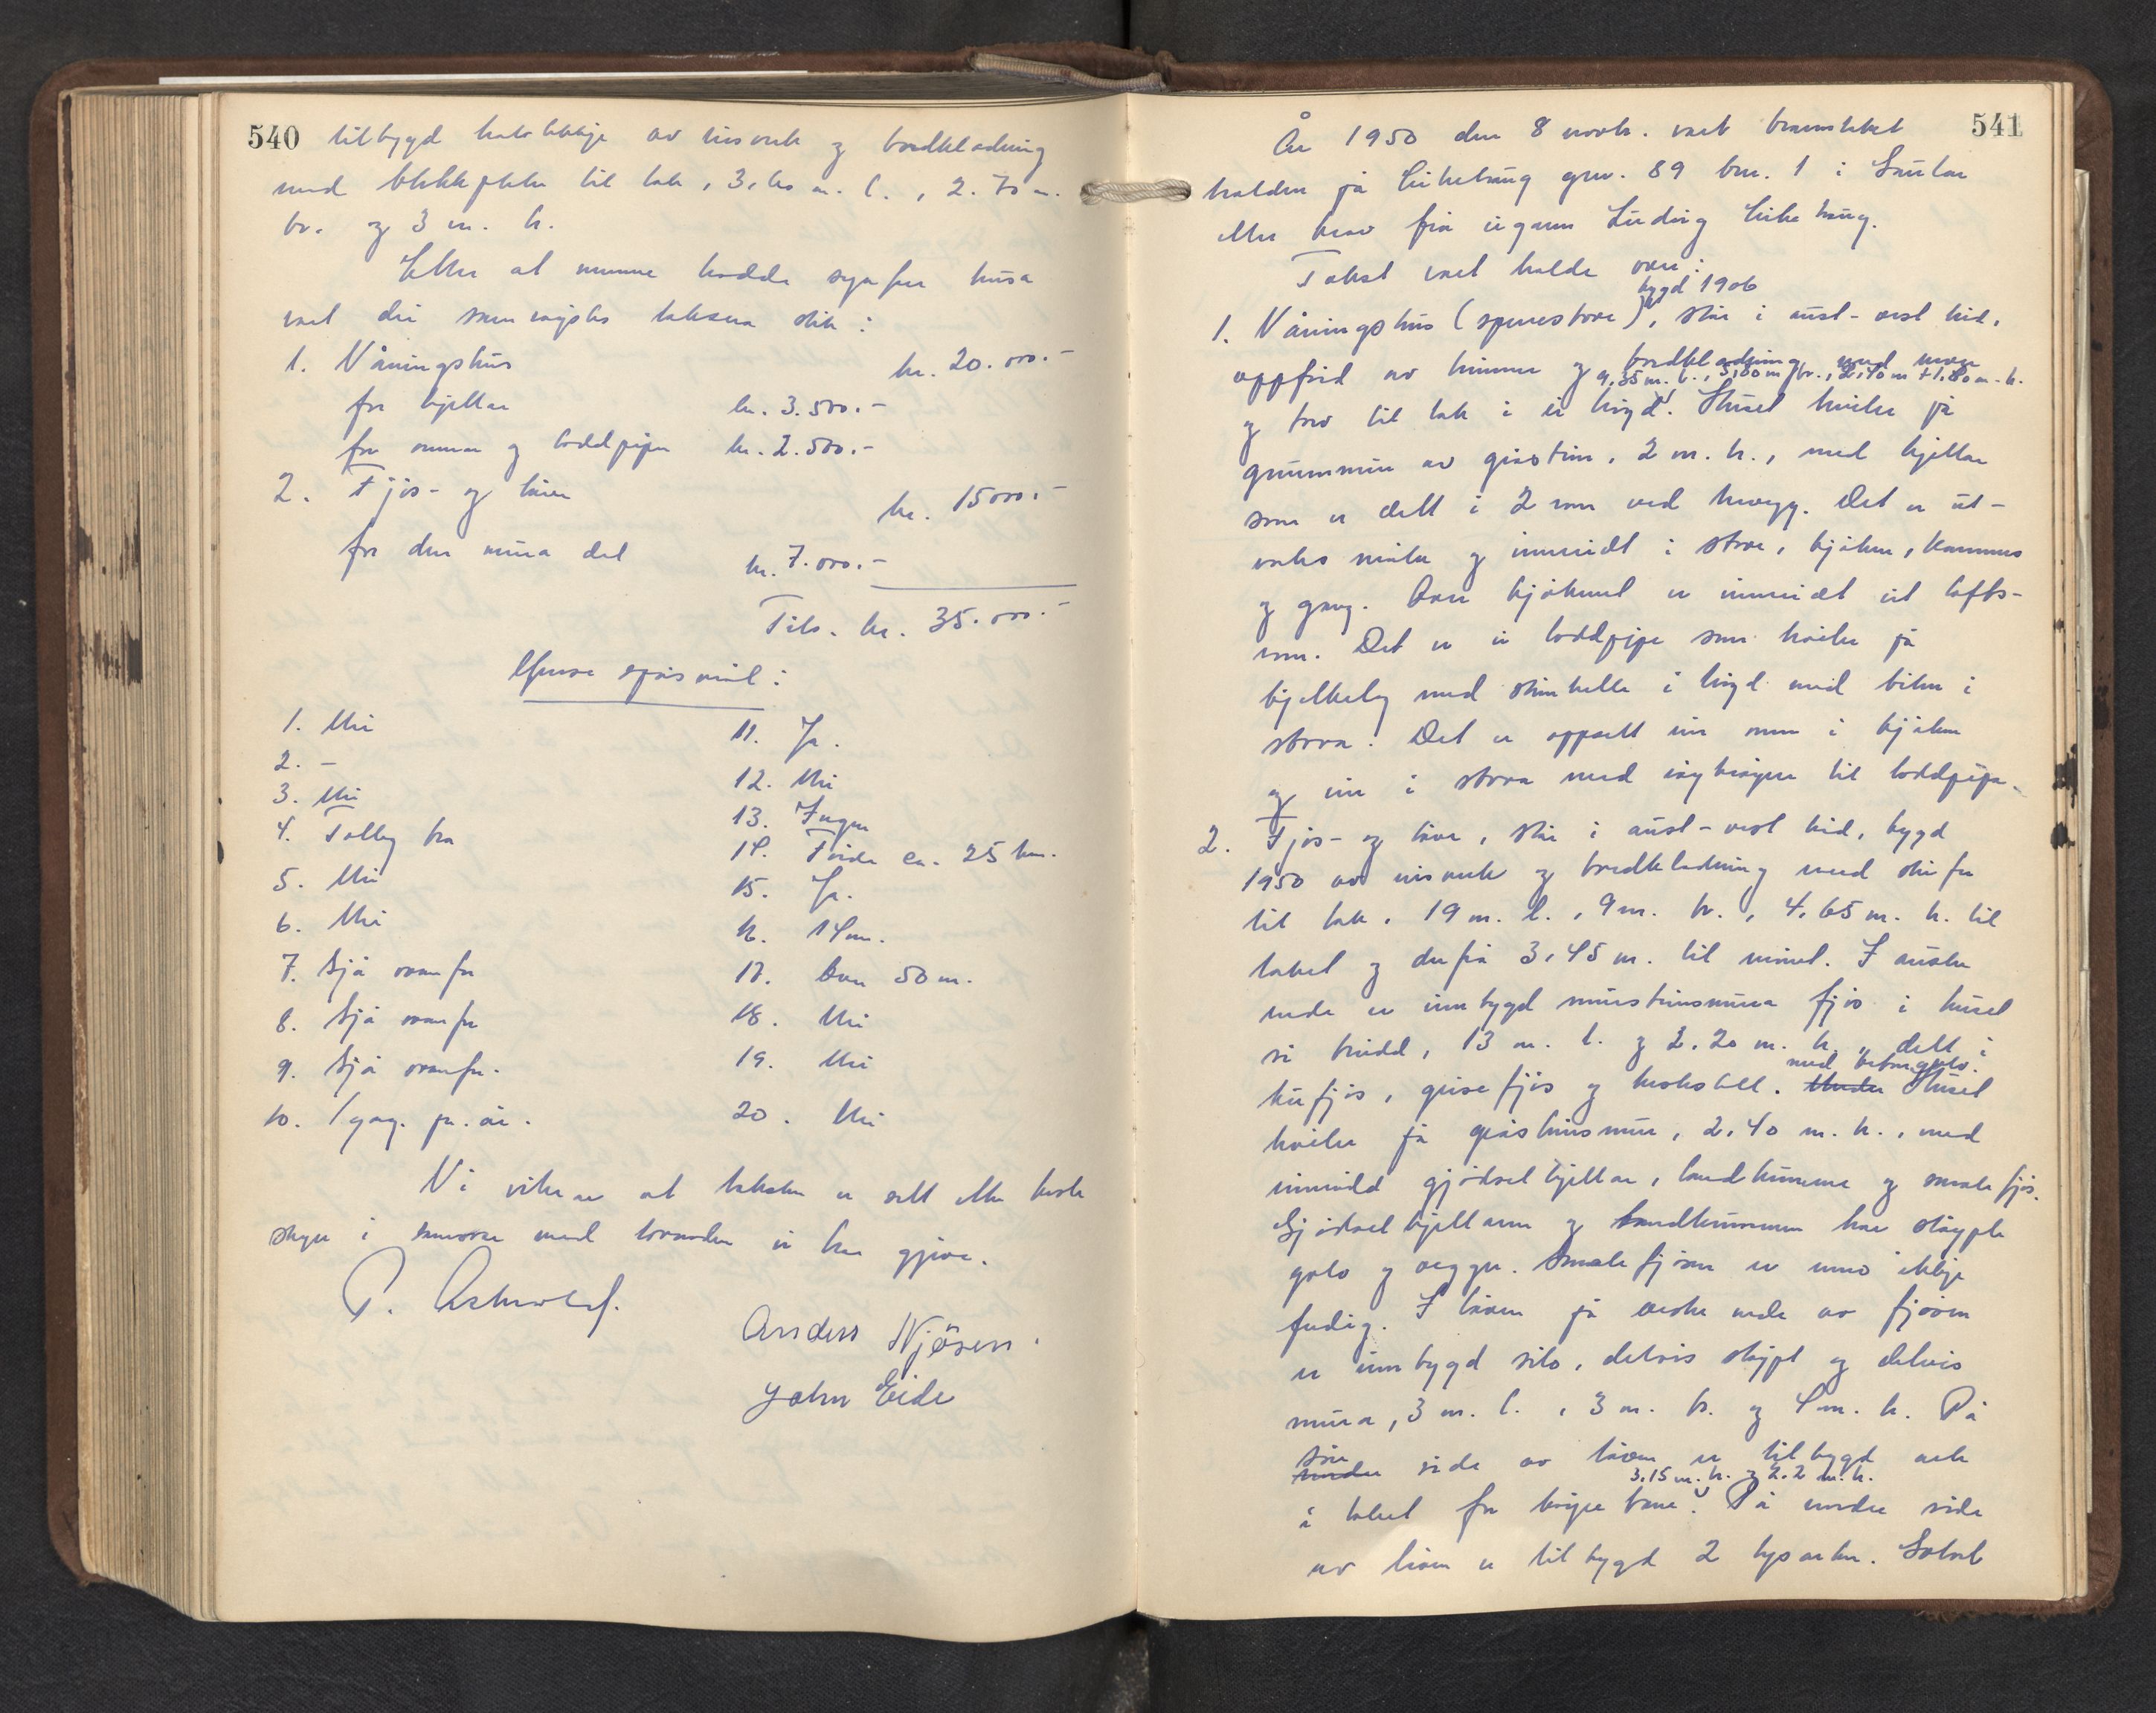 540
tilbygd halvtekkje av bisverk og bordkledning
med blekkplater til tak, 3,60 m. l., 2.70 m.
br. og 3 m. h.
Etter at mennene hadde synfare husa
vart dei samrøystes taksera slik:
1. Våningshus kr. 20.000.-
for kjellar kr. 3.500.-
for omnar og loddpipe kr. 2.500.-
2. Fjøs- og løe kr. 15000.-
for den mura del kr. 7.000.-
Tils. kr. 35.000.-
Ymse spørsmål:
1. Nei
2. -
3. Nei
4. Talleg bra
5. Nei
6. Nei
7. Sjå ovanfor
8. Sjå ovanfor
9. Sjå ovanfor.
10. 1 gag. pr. år.
11. Ja.
12. Nei
13. Ingen
14. Førde ca. 25 km.
15. Ja.
16. 14 m.
17. Over 50 m.
18. Nei
19. Nei
20. Nei
Vi vitnar at taksten er sett etter beste
skyn i samsvar med lovnaden vi har gjeve.
P.
Anders Njøsen.
John Eide
541
År 1950 den 8 novbr. vart brannstakst
halden på gnr. 89 bnr. 1 i Gaular
etter krav frå eigaren Ludvig
Takst vart halde over:
bygd 1906
1. Våningshus (sperrestove), står i aust-vest leid,
oppførd av timmer og bordkledning med never
9,35 m. l., 5,80 m. br., 2,40 m + 1,80 m. h.
og torv til tak i ei høgd. Huset kviler på
grunnmur av gråstein, 2 m. h., med kjellar
som er delt i 2 rom ved trevegg. Det er ut-
vortes måla og innreidt i stove, kjøken, kammers
og gang. Over kjøkenet er innreidt eit lofts-
rom. Det er ei loddpipe som kviler på
bjelkelag med steinhelle i høgd med biten i
stova. Det er oppsett ein omn i kjøken
og ein i stova med røykrøyr til loddpipa.
2. Fjøs- og løe, står i aust-vest leid, bygd
1950 av bisverk og bordkledning med skifer
til tak, 19 m. l., 9 m. br., 4,65 m. h. til
taket og derfrå 3,45 m. til mønet. I austre
ende er innbygd mursteinsmura fjøs i huset
si breidd, 13 m. l. og 2.20 m. h., delt i
med betonggolv.
kufjøs, grisefjøs og hestestall. Under Huset
kviler på gråsteinsmur, 2,40 m. h., med
innreidd gjødselkjellar, landkumme og smalefjøs.
Gjødselkjellaren og landkummen har støypte
golv og vegger. Smalefjøsen er enno ikkje
ferdig. I løen på vestre ende av fjøsen
er innbygd silo, delvis støypt og delvis
mura, 3 m. l., 3 m. br. og 4 m. h. På
søre
nordre side av løen er tilbygd ark
3.15 m. br. og 2.2 m. h.
i taket for køyrebrua. På nordre side
av løen er tilbygd 2 lysarker. Golvet